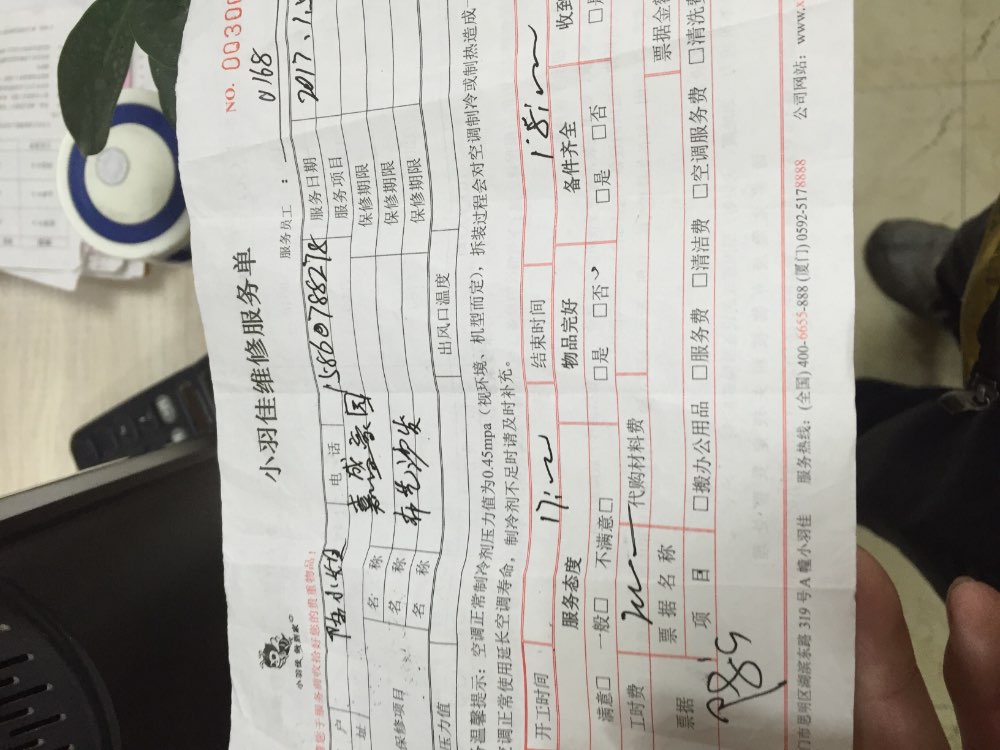 NO. 00300
0168
小羽佳维修服务单
服务员工：
小羽佳 倒到家
请您于服务前收拾好您的贵重物品！
户 陈小姐 电 话 15860788278 服务日期 2017.1.
址 嘉盛豪园 服务项目
名 称 布艺沙发 保修期限
保修项目 名 称 保修期限
名 称 保修期限
压力值 出风口温度
温馨提示：空调正常制冷剂压力值为0.45mpa（视环境、机型而定），拆装过程会对空调制冷或制热造成
调正常使用延长空调寿命，制冷剂不足时请及时补充。
开工时间 17: 结束时间 18:
服务态度 物品完好 备件齐全 收到
满意□ 一般□ 不满意□ □是 □否 □是 □否
工时费 代购材料费
票据 票 据 名 称 票据金额
项 目 □搬办公用品 □服务费 □清洁费 □空调服务费 □清洗费
门市思明区湖滨东路 319 号 A 幢小羽佳 服务热线：(全国) 400-6655-888 (厦门) 0592-5178888 公司网站：www.x